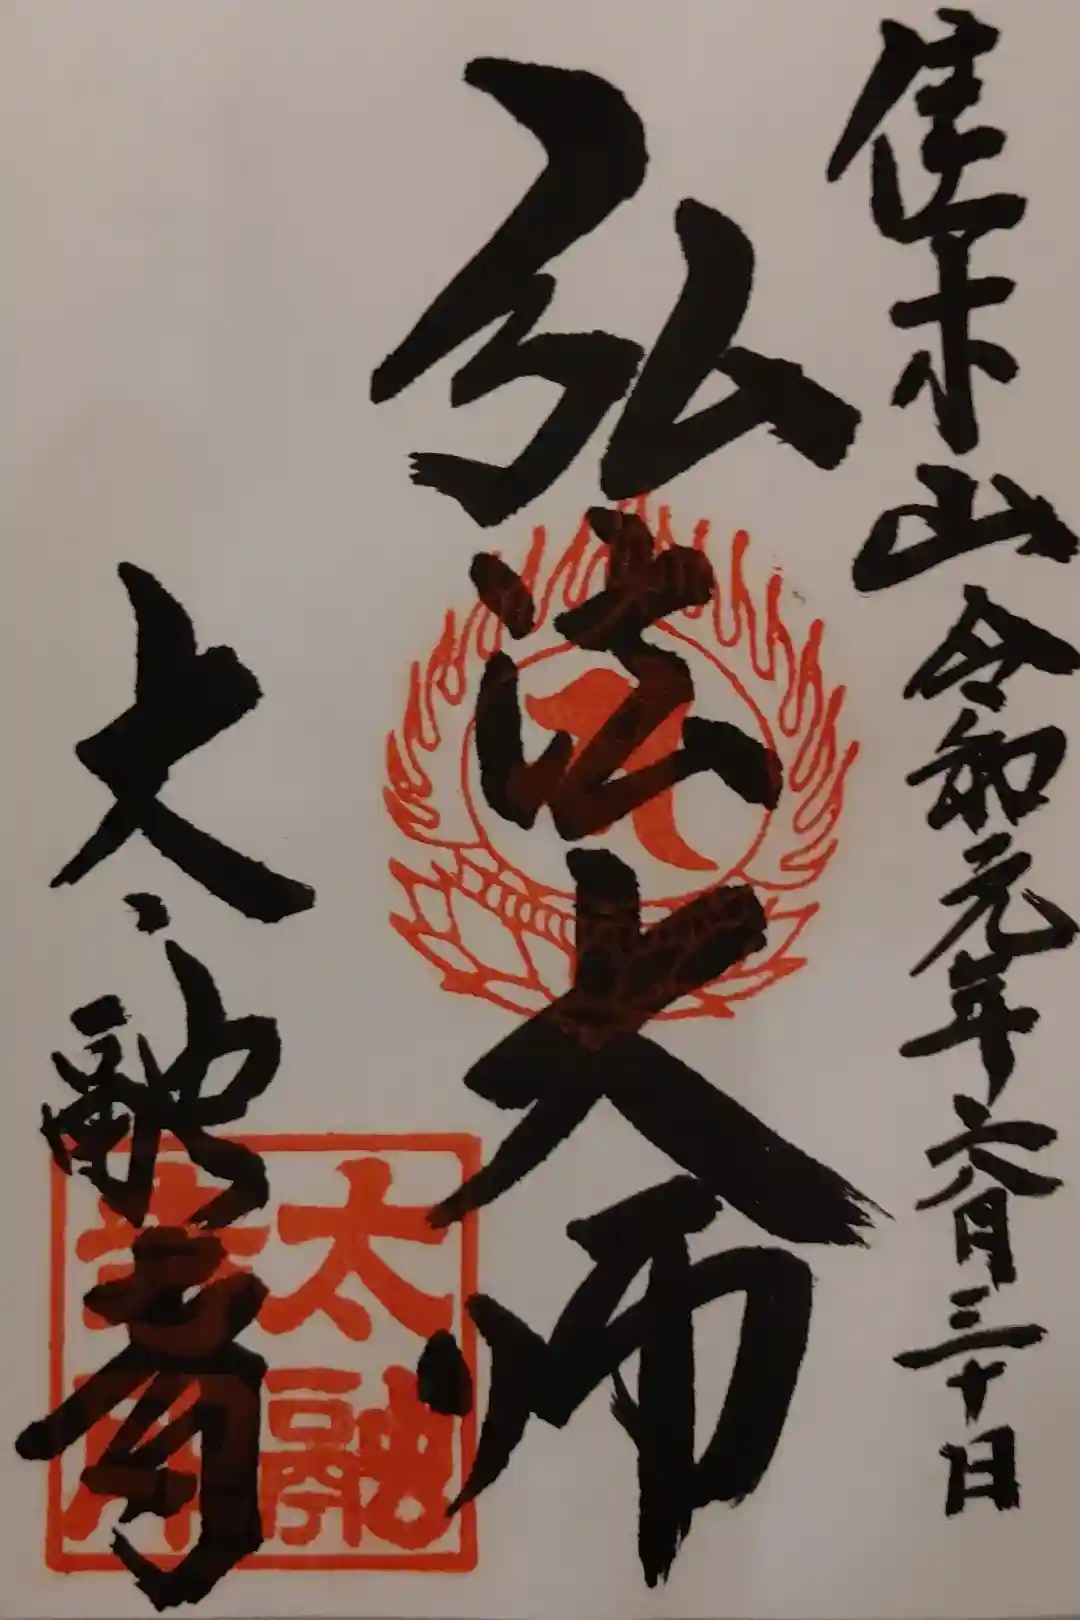 佳木山 令和元年六月三十日
弘法大師
太融寺
太融